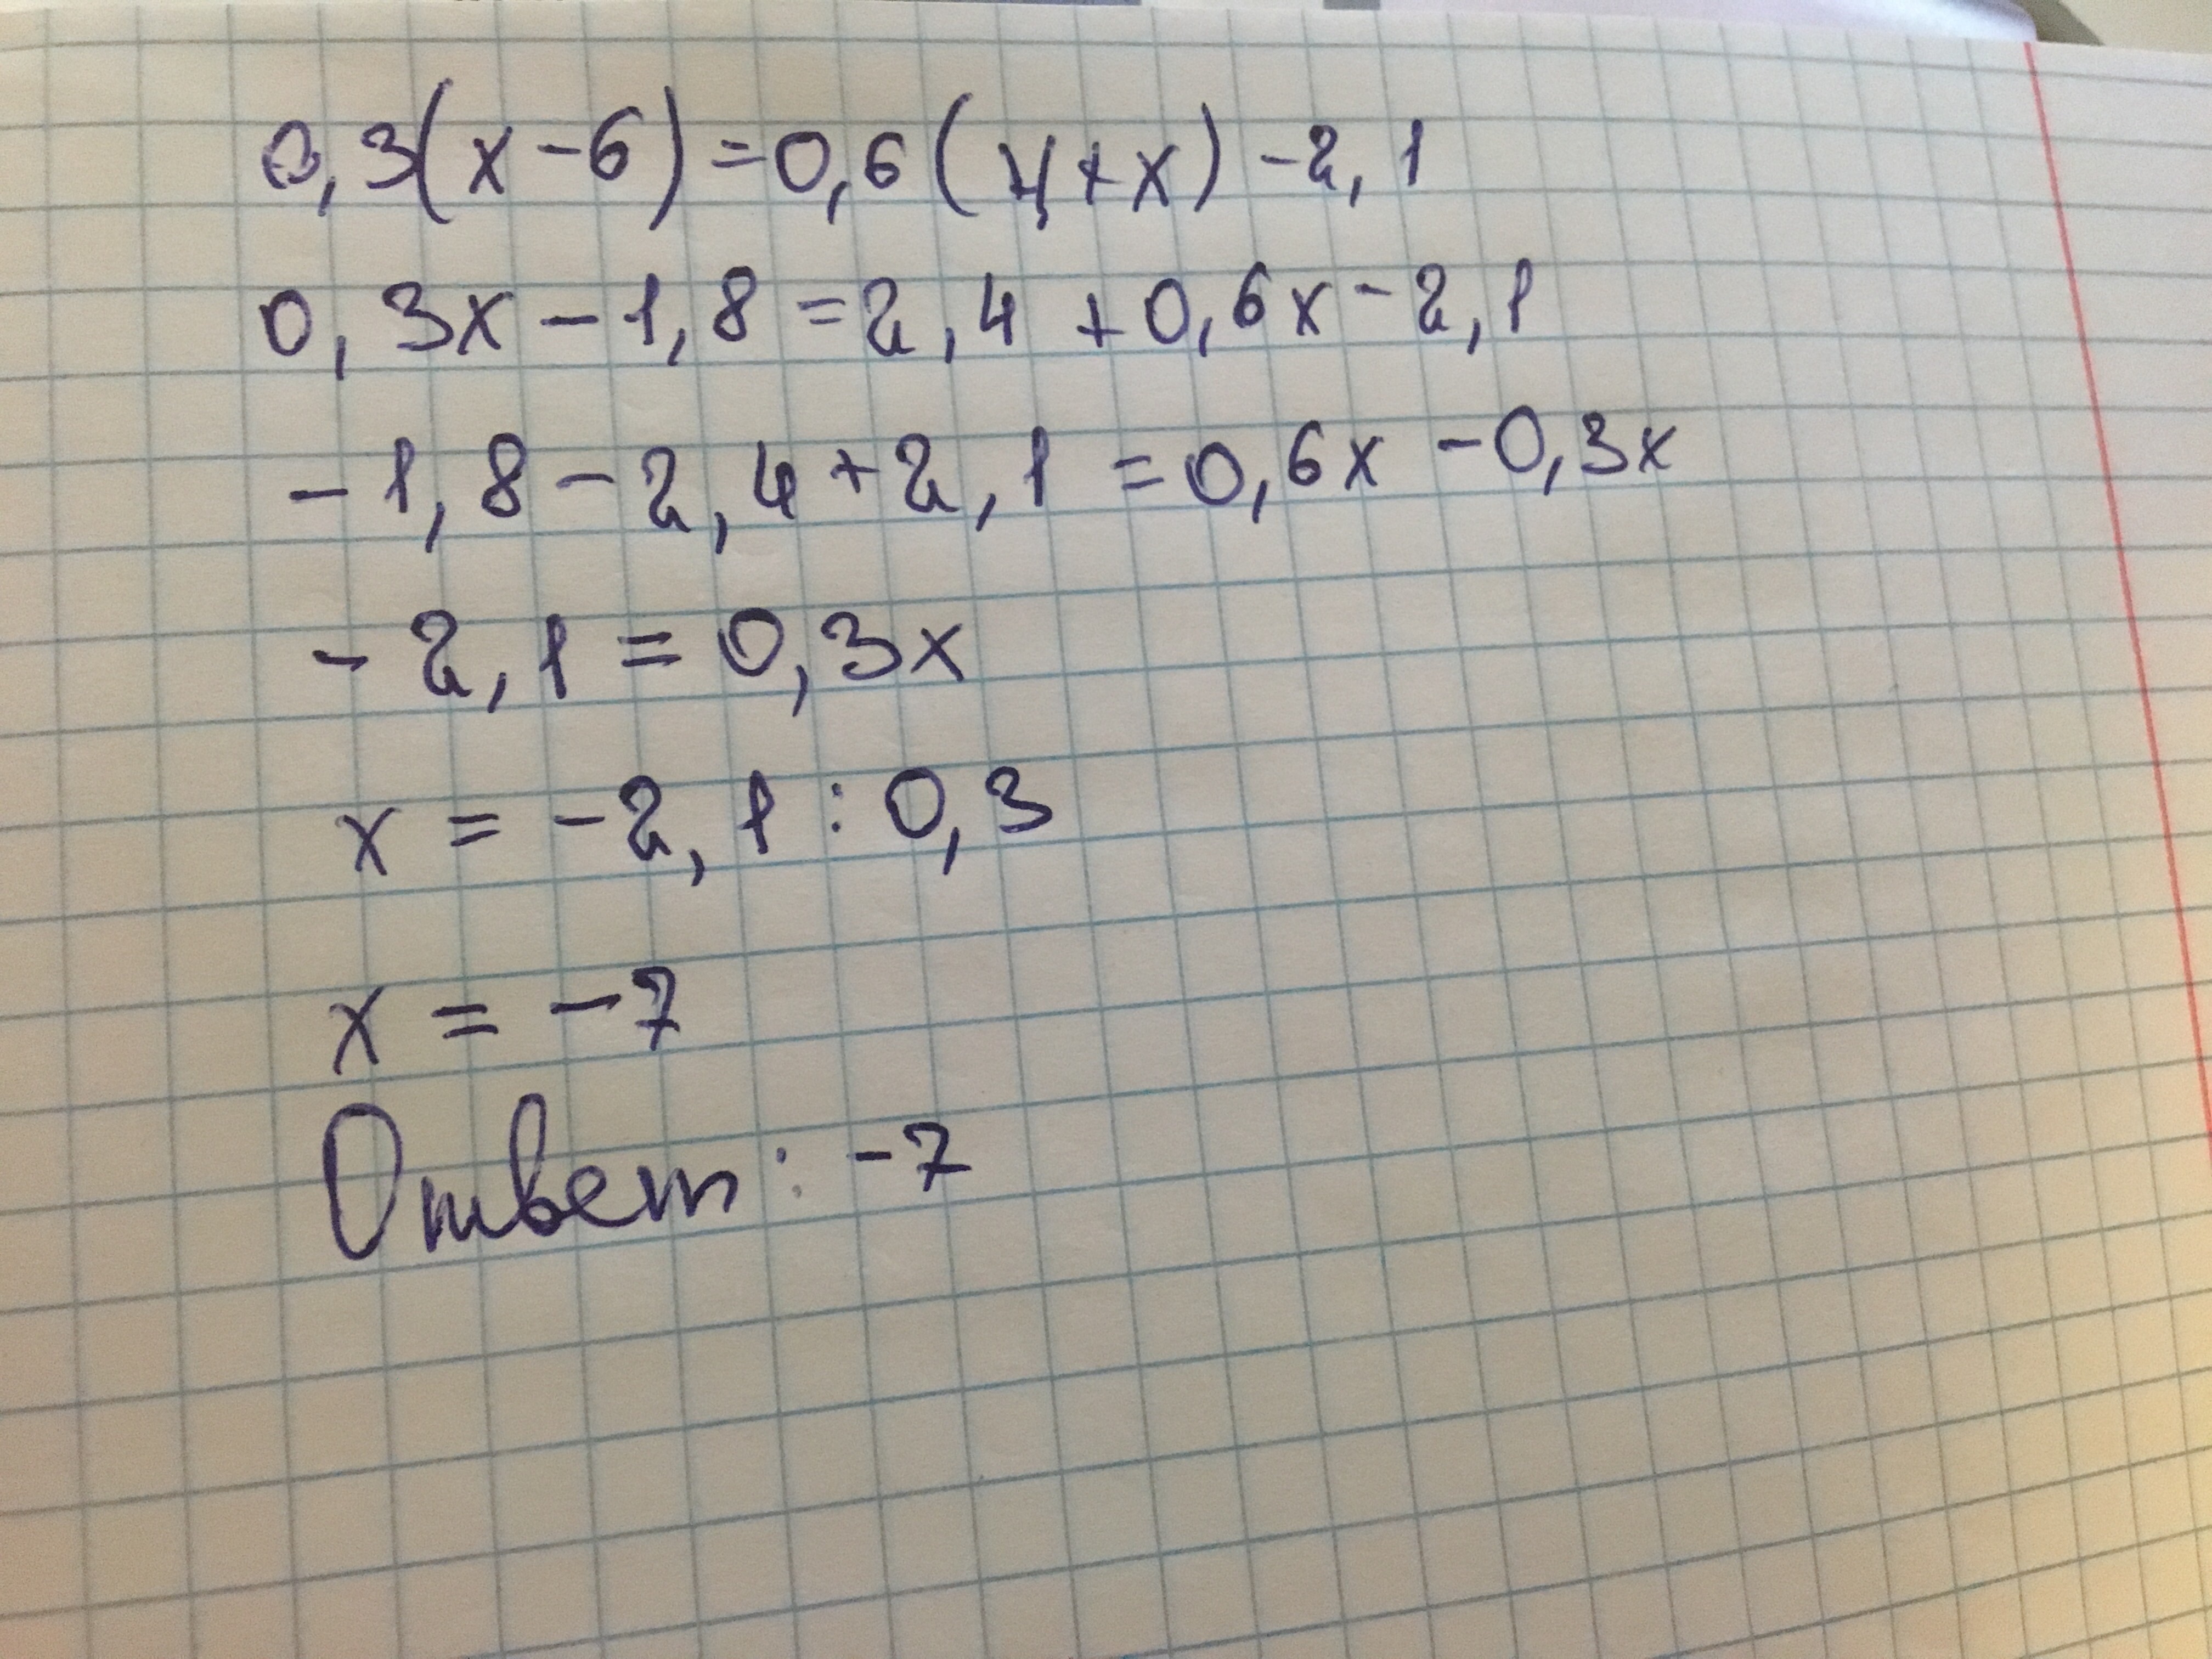 0,3(x-6)=0,6(4+x)-2,1
0,3x-1,8=2,4+0,6x-2,1
-1,8-2,4+2,1=0,6x-0,3x
-2,1=0,3x
x=-2,1:0,3
x=-7
Ответ: -7